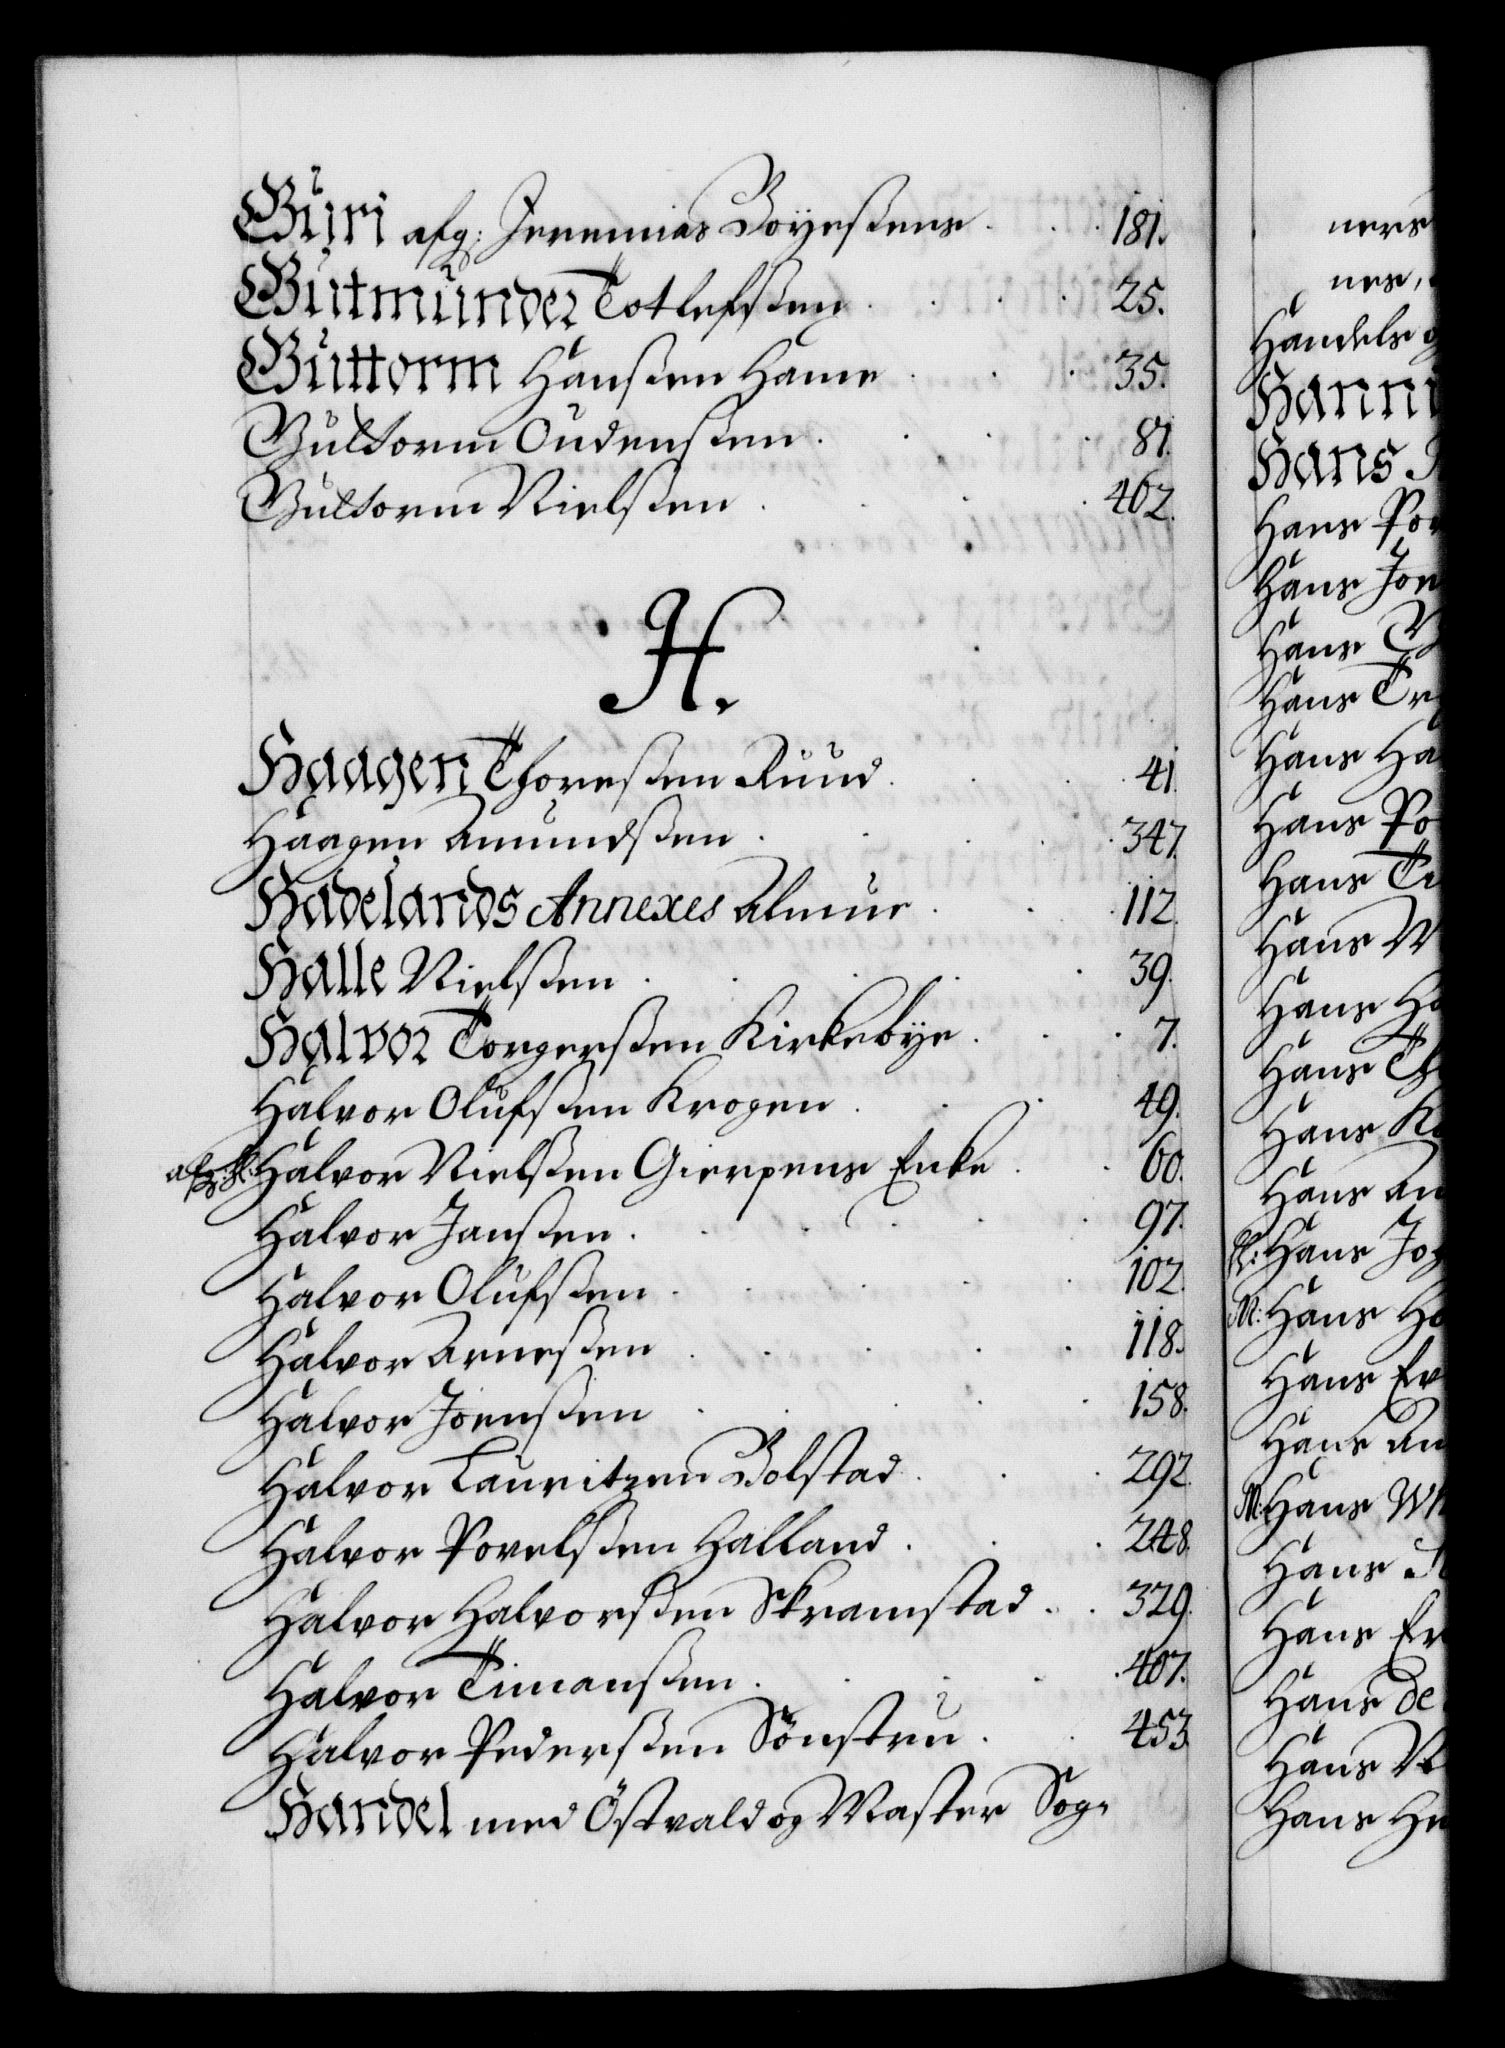 Guri afg: Jeremias Boyesens . . 181.
Gutmunder Totlefsen . . . 25.
Guttorm Hansen Hame . . . 35.
Guttorm Oudensen . . . . 87.
Guttorm Nielsen . . . . 402.
H.
Haagen Thoresen Ruud . . . 41.
Haagen Amundsen . . . . 347.
Hadelands Annexes Almue . . . 112.
Halle Nielsen . . . . . 39.
Halvor Torgersen Kirkebye . . . 7.
Halvor Olufsen Krogen . . . 49.
afg: sl: Halvor Nielsen Gierpens Enke . . 60.
Halvor Jansen . . . . . 97.
Halvor Olufsen . . . . . 102.
Halvor Arnesen . . . . . 118.
Halvor Joensen . . . . . 158.
Halvor Lauritzen Bolstad . . . 292.
Halvor Povelsen Halland . . . 248.
Halvor Halvorsen Skramstad . . 329.
Halvor Timansen . . . . 407.
Halvor Pedersen Sönstru . . 453.
Handel med Östvald og Master Sog-
ners
nes,
Handels
Hanni
Hans
Hans Pov
Hans Joe
Hans
Hans Tr
Hans Ha
Hans Po
Hans
Hans
Hans Ha
Hans Th
Hans K
Hans An
sl: Hans Jo
M: Hans Ha
Hans Ev
Hans An
M: Hans W
Hans
Hans Er
Hans de
Hans
Hans He